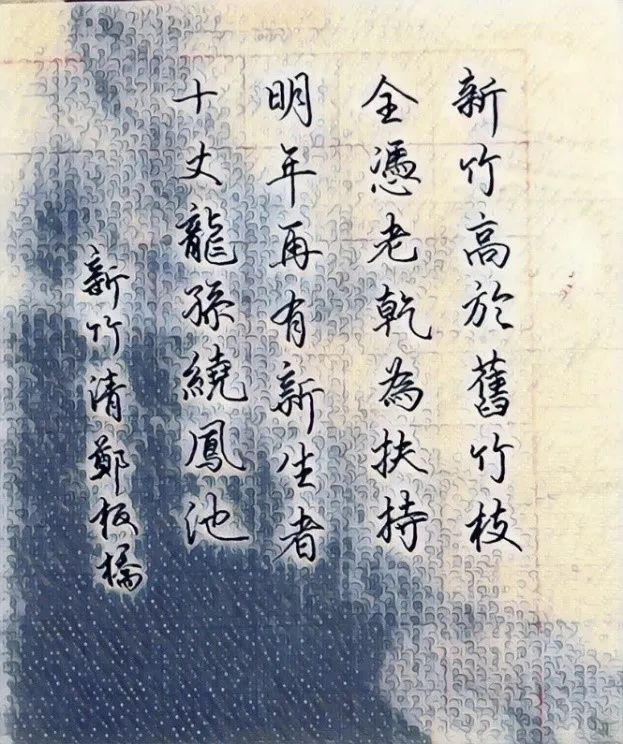 新竹高於舊竹枝
全憑老乾為扶持
明年再有新生者
十丈龍孫繞鳳池
新竹清鄭板橋